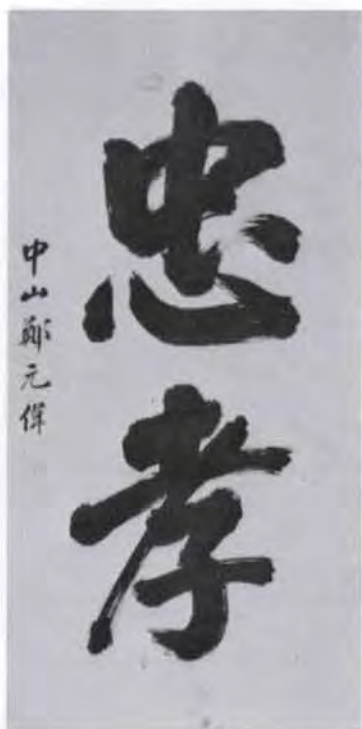 忠孝
中山鄭元偉